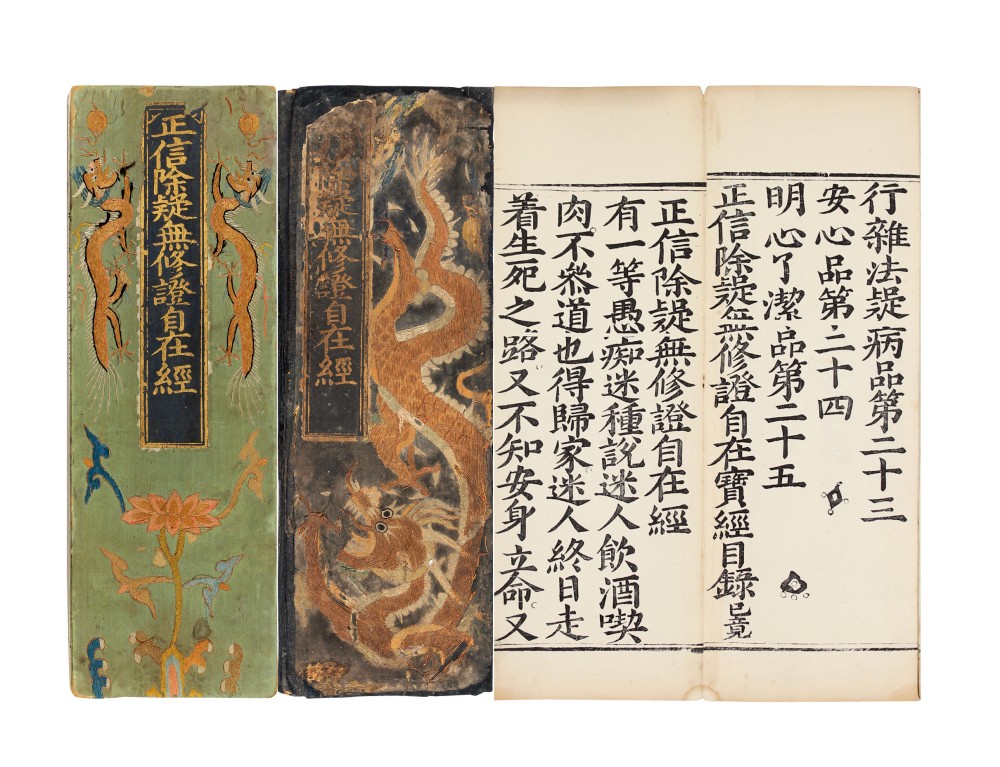 正信除疑無修證自在經
除疑無修證自在經
行雜法疑病品第二十三
安心品第二十四
明心了潔品第二十五
正信除疑無修證自在寶經目錄已竟
正信除疑無修證自在經
有一等愚痴迷種說迷人飲酒喫
肉不叅道也得歸家迷人終日走
着生死之路又不知安身立命又